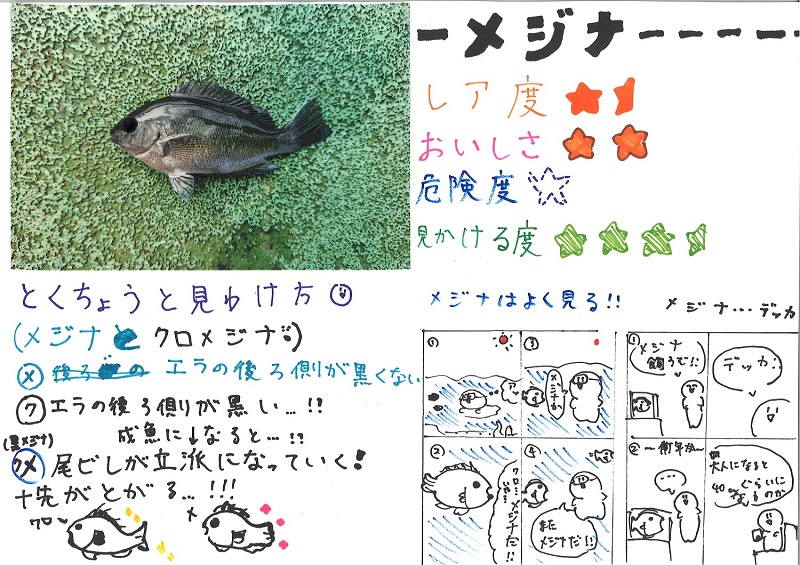 ーメジナーーーー
レア度
おいしさ
危険度
見かける度
メジナはよく見る!!
とくちょうと見わけ方
(メジナとクロメジナ)
メ エラの後ろ側が黒くない
ク エラの後ろ側が黒い…!!
成魚に↓なると…!!
(黒メジナ)
クメ 尾ビレが立派になっていく!
十先がとがる…!!!
クロ
メ
①
③
メジナか
②
クロ…メジナだ!!
④
またメジナだ!!
メジナ…デッカ
①
メジナ飼うで!!
デッカ!!
②
〜数年か〜
…
大人になると
40㎝ぐらいに
なるのか